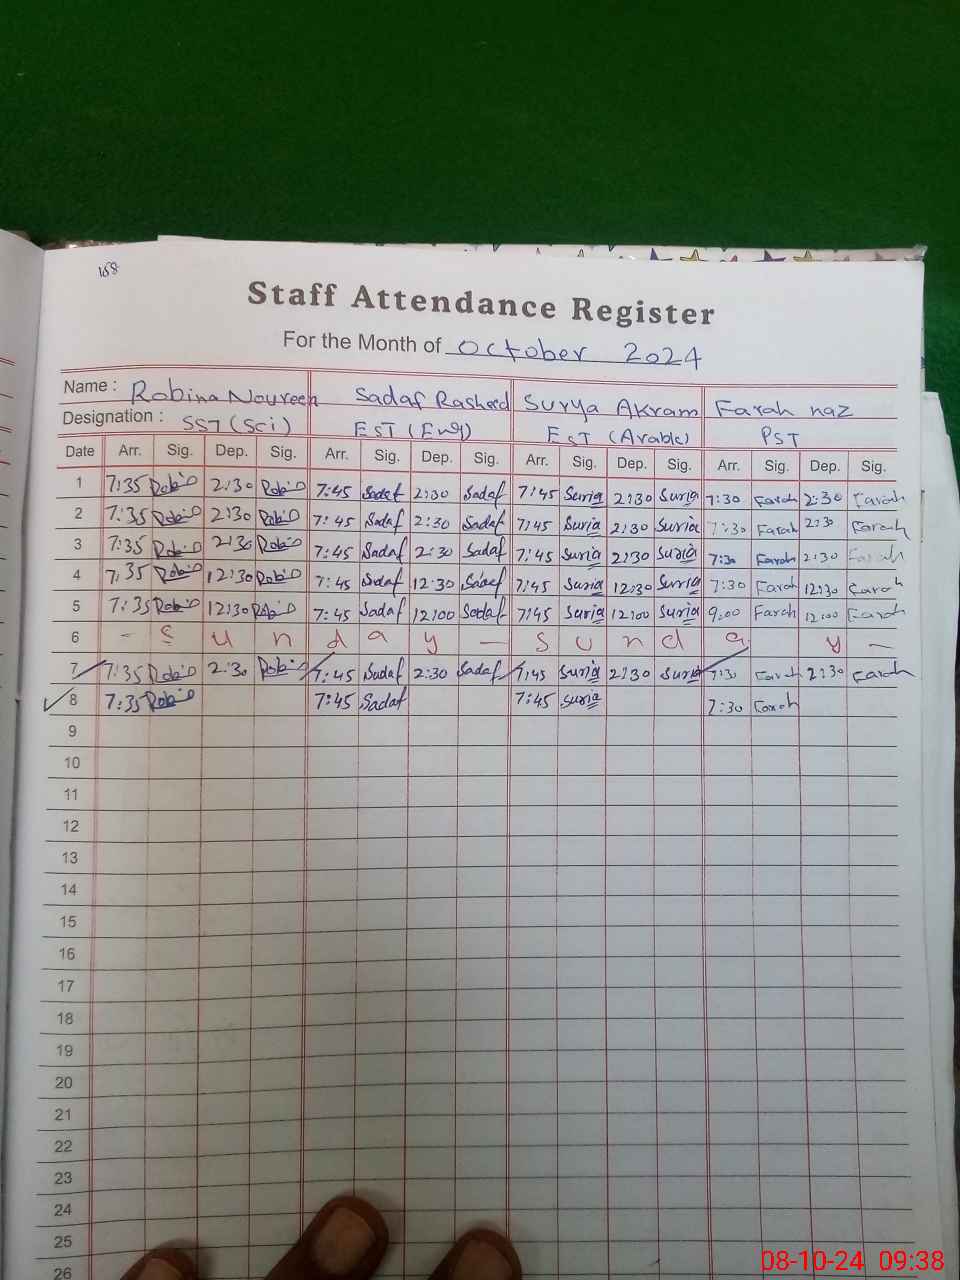 168
Staff Attendance Register
For the Month of October 2024
Name : Robina Noureen Sadaf Rasheed Surya Akram Farah naz
Designation : SST (Sci) EST (Eng) EST (Arabic) PST
Date Arr. Sig. Dep. Sig. Arr. Sig. Dep. Sig. Arr. Sig. Dep. Sig. Arr. Sig. Dep. Sig.
1 7:35 Robin 2:30 Robin 7:45 Sadaf 2:30 Sadaf 7:45 Suria 2:30 Suria 7:30 Farah 2:30 Farah
2 7:35 Robin 2:30 Robin 7:45 Sadaf 2:30 Sadaf 7:45 Suria 2:30 Suria 7:30 Farah 2:30 Farah
3 7:35 Robin 2:30 Robin 7:45 Sadaf 2:30 Sadaf 7:45 Suria 2:30 Suria 7:30 Farah 2:30 Farah
4 7:35 Robin 12:30 Robin 7:45 Sadaf 12:30 Sadaf 7:45 Suria 12:30 Surria 7:30 Farah 12:30 Farah
5 7:35 Robin 12:30 Robin 7:45 Sadaf 12:00 Sadaf 7:45 Suria 12:00 Suria 9:00 Farah 12:00 Farah
6 - S u n d a y - S u n d a y -
7 7:35 Robin 2:30 Robin 7:45 Sadaf 2:30 Sadaf 7:45 Suria 2:30 Suria 7:30 Farah 2:30 Farah
8 7:35 Robin 7:45 Sadaf 7:45 Suria 7:30 Farah
9
10
11
12
13
14
15
16
17
18
19
20
21
22
23
24
25
26
08-10-24 09:38